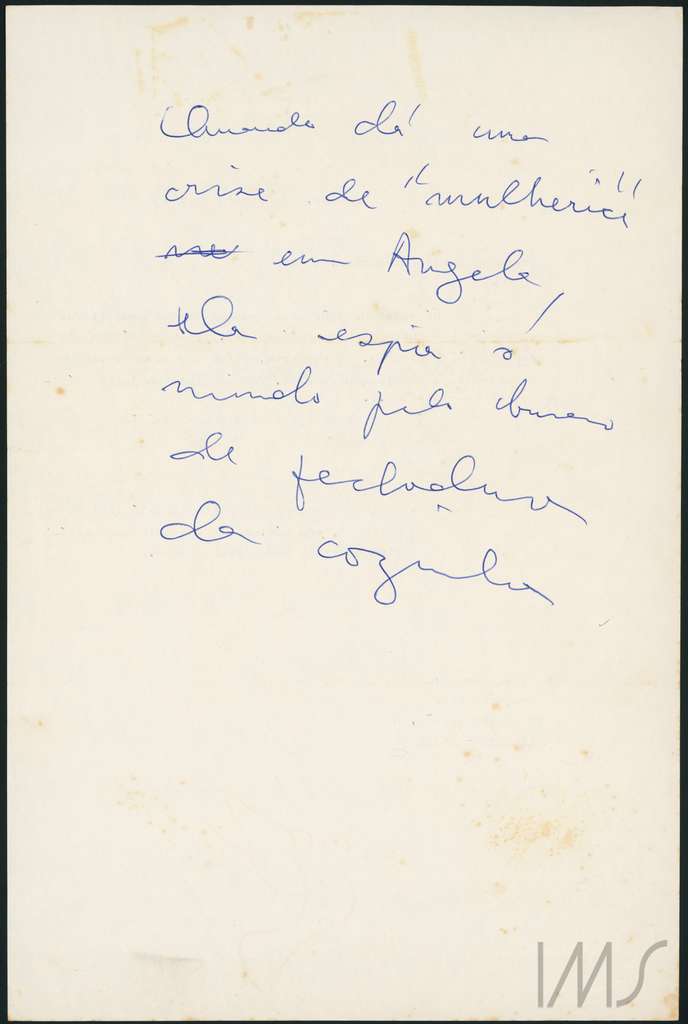 Quando dá uma
crise de "mulherice"
em Angela,
ela espia o
mundo pelo buraco
de fechadura
da cozinha
IMS